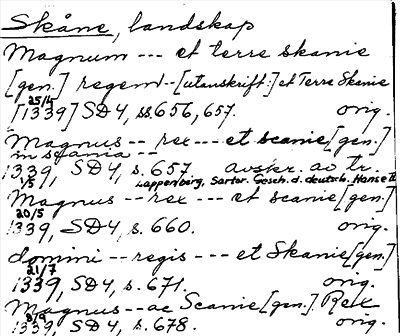 Skåne, landskap
Magnum --- et terre skanie
[gen.] regem -- [utanskrift:] et Terre Skanie
25/4
[1339] SD4, ss. 656, 657. orig.
Magnus -- rex --- et scanie [gen.]
in scania --
1339, SD4, s. 657 avskr. av tr.
1/5 Lappenberg, Sartor. Gesch. d. deutsch. Hanse II
Magnus -- rex --- et scanie [gen.]
20/5
1339, SD4, s. 660. orig.
domini -- regis --- et Skanie [gen.]
21/7
1339, SD4, s. 671. orig.
Magnus -- ac Scanie [gen.] Rex
1339, SD4, s. 678. orig.